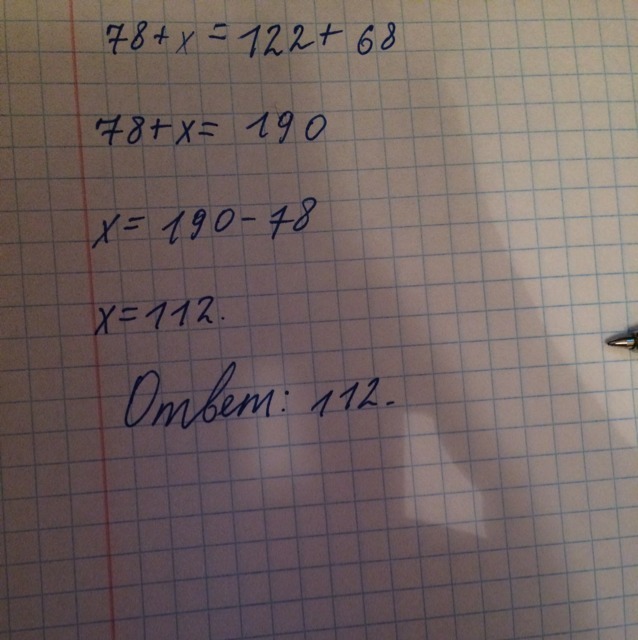 78+x=122+68
78+x= 190
x= 190-78
x=112.
Ответ: 112.